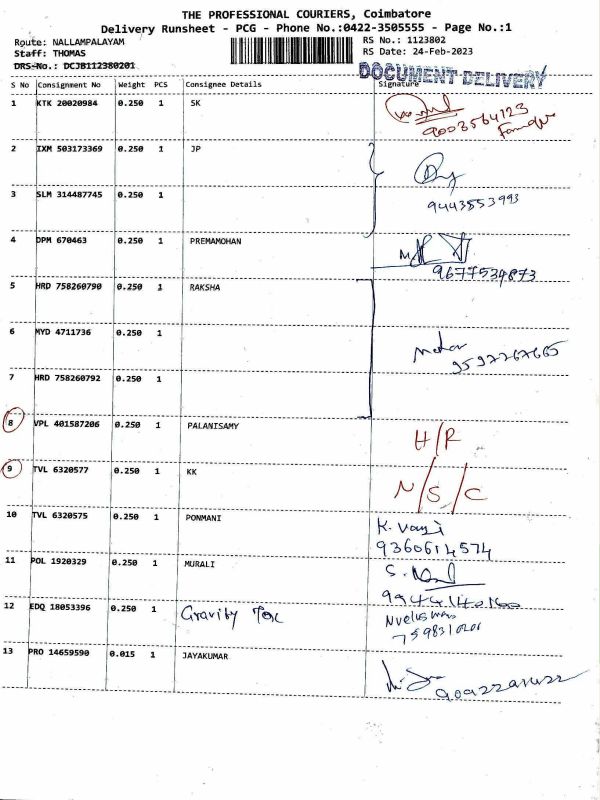 THE PROFESSIONAL COURIERS, Coimbatore
Delivery Runsheet - PCG - Phone No.:0422-3505555 - Page No.:1
Route: NALLAMPALAYAM RS No.: 1123802
Staff: THOMAS RS Date: 24-Feb-2023
DRS-No.: DCJB112380201
DOCUMENT DELIVERY
S No Consignment No Weight PCS Consignee Details Signature
1 KTK 20020984 0.250 1 SK
9003564123
2 IXM 503173369 0.250 1 JP
3 SLM 314487745 0.250 1
9443553993
4 DPM 670463 0.250 1 PREMAMOHAN
9677534873
5 HRD 758260790 0.250 1 RAKSHA
6 MYD 4711736 0.250 1
9597767665
7 HRD 758260792 0.250 1
8 VPL 401587206 0.250 1 PALANISAMY H/R
9 TVL 6320577 0.250 1 KK N/S/C
10 TVL 6320575 0.250 1 PONMANI K.
9360614574
11 POL 1920329 0.250 1 MURALI S.
12 EDQ 18053396 0.250 1 Gravity
13 PRO 14659590 0.015 1 JAYAKUMAR